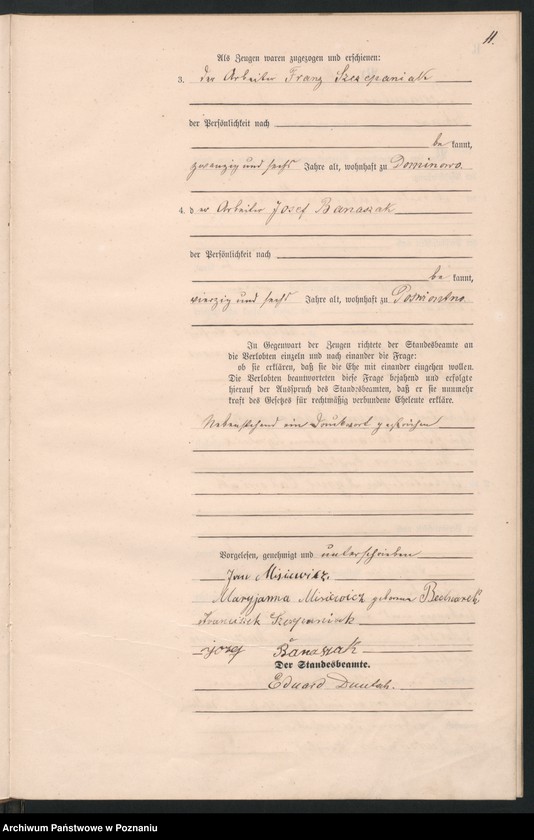 11.
Als Zeugen waren zugezogen und erschienen:
3. der Arbeiter Franz Szczepaniak
der Persönlichkeit nach
be kannt,
zwanzig und sechs Jahre alt, wohnhaft zu Dominowo.
4. d er Arbeiter Josef Banaszak
der Persönlichkeit nach
be kannt,
vierzig und sechs Jahre alt, wohnhaft zu
In Gegenwart der Zeugen richtete der Standesbeamte an
die Verlobten einzeln und nach einander die Frage:
ob sie erklären, daß sie die Ehe mit einander eingehen wollen.
Die Verlobten beantworteten diese Frage bejahend und erfolgte
hierauf der Ausspruch des Standesbeamten, daß er sie nunmehr
kraft des Gesetzes für rechtmäßig verbundene Eheleute erkläre.
Nebenstehend ein Druckwort gestrichen
Vorgelesen, genehmigt und unterschrieben
Jan Misiewicz.
Maryjanna Misiewicz geborene Bednarek
Franciszek Szczepaniak
Jozef Banaszak
Der Standesbeamte.
Eduard
Archiwum Państwowe w Poznaniu